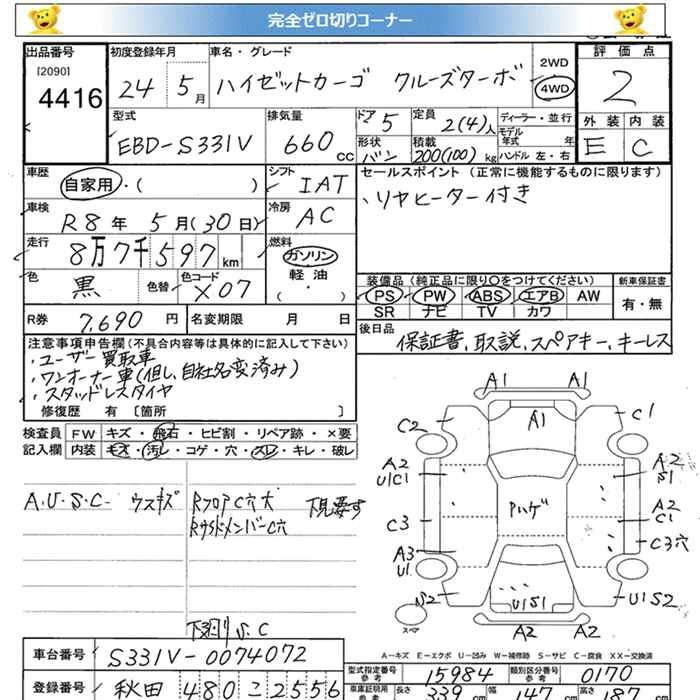 完全ゼロ切りコーナー
出品番号
[2090]
4416
初度登録年月
24 5月
車名・グレード
ハイゼットカーゴ クルーズターボ
2WD
4WD
評価点
2
外装 内装
E C
型式
EBD-S331V
排気量
660 cc
ドア 5
形状 バン
定員 2(4)人
積載 200(100) kg
ディーラー・並行
モデル年式 年
ハンドル 左・右
車歴
自家用・( )
シフト
IAT
車検
R8年 5月(30日)
冷房
AC
走行
8万7千597km
燃料
ガソリン
軽油
( ・ )
色
黒
色替
色コード
X07
セールスポイント (正常に機能するものに限ります)
・リヤヒーター付き
装備品 (純正品に限り○をつけてください)
PS PW ABS エアB AW
SR ナビ TV カワ
新車保証書
有・無
R券 7,690円
名変期限 月 日
後日品
保証書、取説、スペアキー、キーレス
注意事項申告欄(不具合内容等は具体的に記入して下さい)
・ユーザー買取車
・ワンオーナー車(但し、自社名変済み)
・スタッドレスタイヤ
修復歴 有 〔箇所 〕
検査員 FW キズ・飛石・ヒビ割・リペア跡・×要
記入欄 内装 キズ・汚レ・コゲ・穴・スレ・キレ・破レ
A.U.S.C- ウスキズ
RフロアC穴大 下見要す
RサイドメンバーC穴
下回りS.C
A1 A1
A1
C2 C1
A2 U1C1
A2 S1
Pハゲ
C3
A2 C1
C3穴
A3 U1
S2
U1S1
U1S2
A2 A2
スペア
A-キズ E-エクボ U-凹み W-補修跡 S-サビ C-腐食 XX-交換済
車台番号 S331V-0074072
型式指定番号 参考 15984
類別区分番号 参考 0170
登録番号 秋田 480 こ 2556
車庫証明用 参考 長さ 339cm 幅 147cm 高さ 187cm